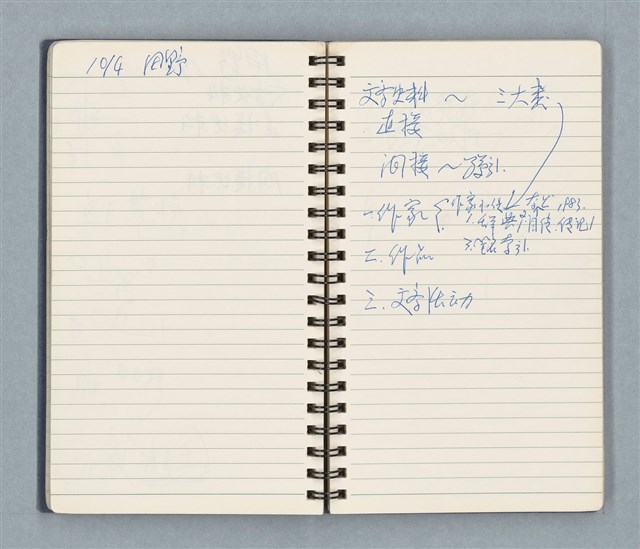 10/4 田野
文学史料 ~ 三大类
直接
间接 ~ 索引.
一.作家 作家小传 1983.
1.辞典 2.自传.传记
3.笔名索引.
二.作品
三.文学活动